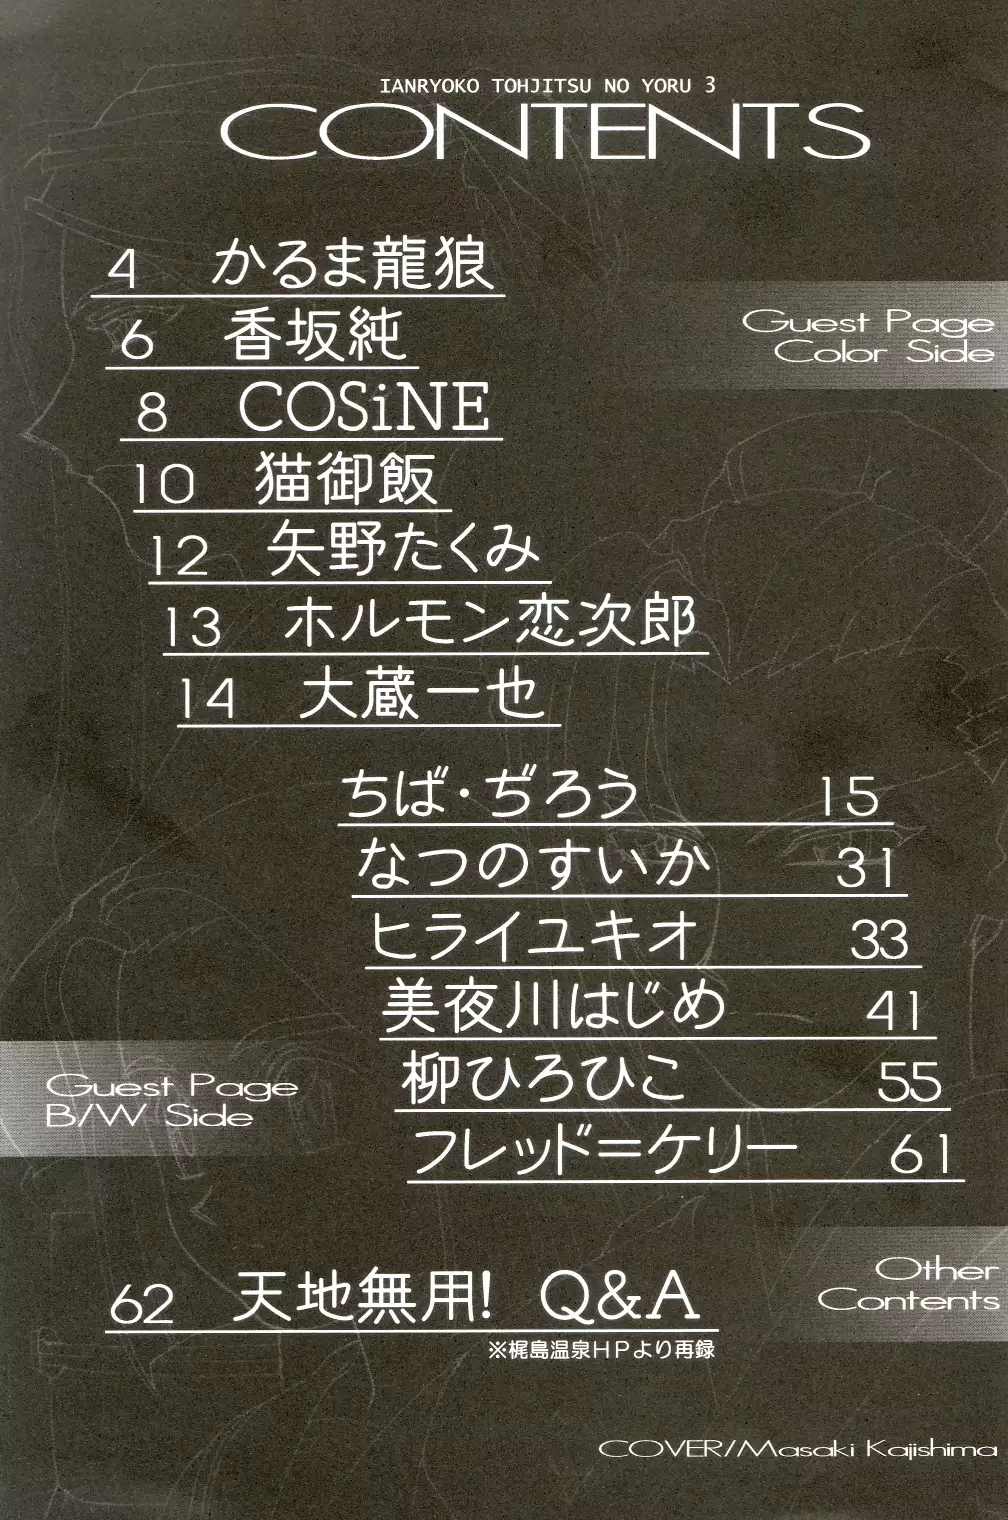 IANRYOKO TOHJITSU NO YORU 3
CONTENTS
4 かるま龍狼
Guest Page
Color Side
6 香坂純
8 COSiNE
10 猫御飯
12 矢野たくみ
13 ホルモン恋次郎
14 大蔵一也
ちば・ぢろう 15
なつのすいか 31
ヒライユキオ 33
美夜川はじめ 41
Guest Page
B/W Side
柳ひろひこ 55
フレッド=ケリー 61
Other
Contents
62 天地無用! Q&A
※梶島温泉HPより再録
COVER/Masaki Kajishima